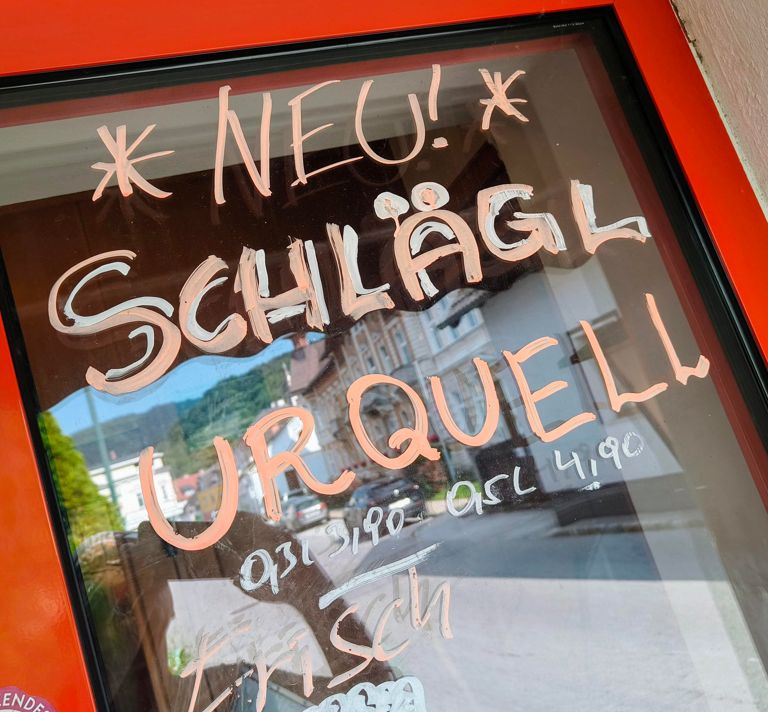 * NEU! *
SCHLÄGL
URQUELL
0,3L 3,90 0,5L 4,90
frisch